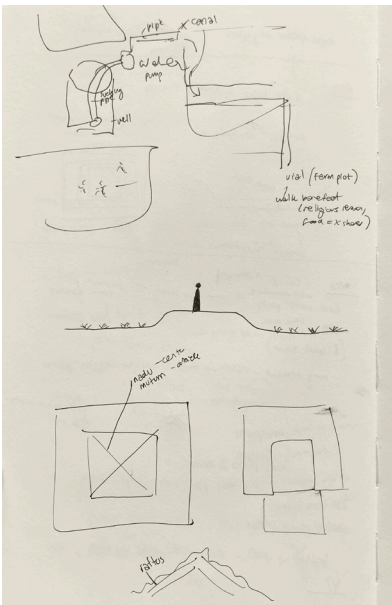 pipe
x canal
water
pump
well
vial (farm plot)
walk barefoot
(religious reason,
food = x shoes)
nadu - center
mutum - outside
rafters